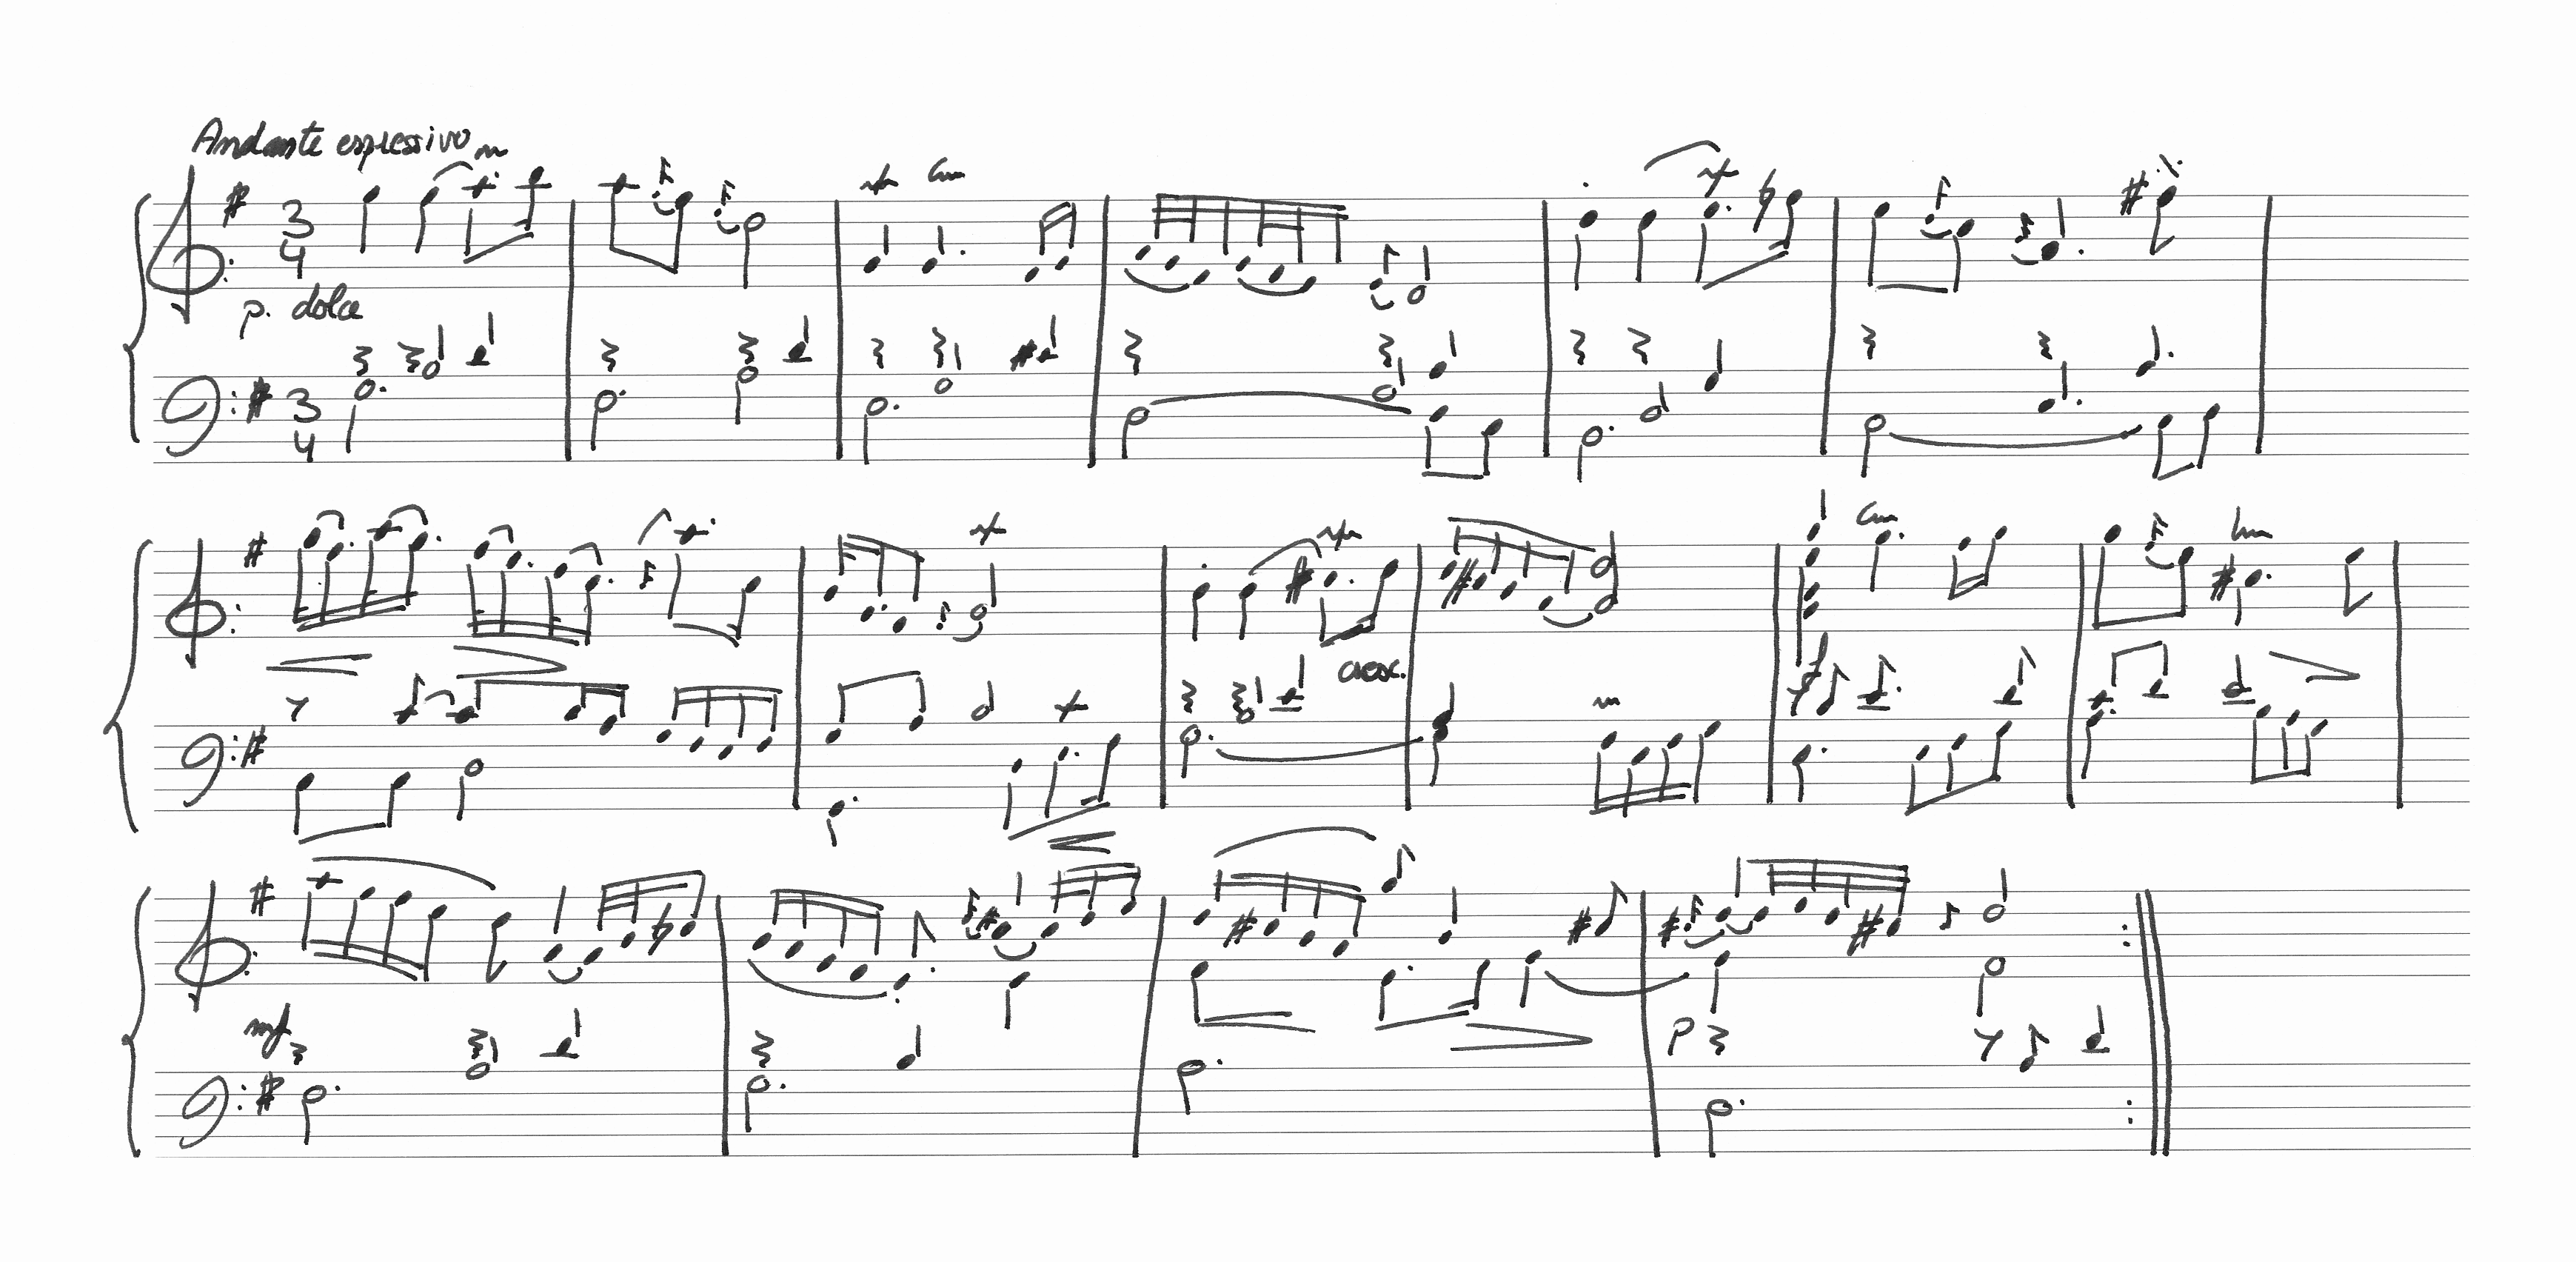 Andante espressivo
3
4
p. dolce
3
4
cresc.
f
mf
p